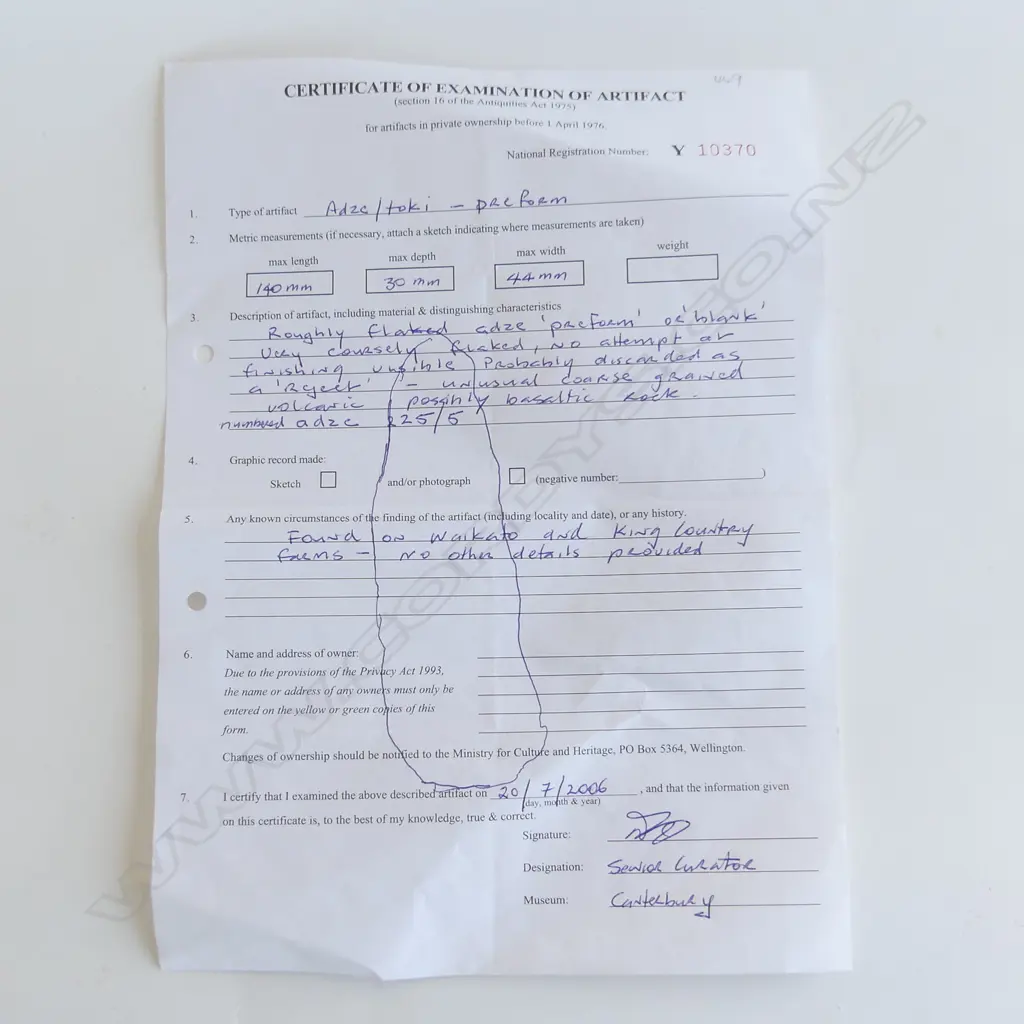 469
CERTIFICATE OF EXAMINATION OF ARTIFACT
(section 16 of the Antiquities Act 1975)
for artifacts in private ownership before 1 April 1976.
National Registration Number: Y 10370
1. Type of artifact Adze/toki - preform
2. Metric measurements (if necessary, attach a sketch indicating where measurements are taken)
max length max depth max width weight
140mm 30 mm 44mm
3. Description of artifact, including material & distinguishing characteristics
Roughly flaked adze 'preform' or 'blank'
Very coursely flaked, no attempt at
finishing visible Probably discarded as
a 'reject' - unusual coarse grained
volcanic possibly basaltic rock.
numbered adze 225/5
4. Graphic record made:
Sketch and/or photograph (negative number: )
5. Any known circumstances of the finding of the artifact (including locality and date), or any history.
Found on Waikato and King Country
farms - no other details provided
6. Name and address of owner:
Due to the provisions of the Privacy Act 1993,
the name or address of any owners must only be
entered on the yellow or green copies of this
form.
Changes of ownership should be notified to the Ministry for Culture and Heritage, PO Box 5364, Wellington.
7. I certify that I examined the above described artifact on 20/7/2006, and that the information given
(day, month & year)
on this certificate is, to the best of my knowledge, true & correct.
Signature:
Designation: Senior Curator
Museum: Canterbury